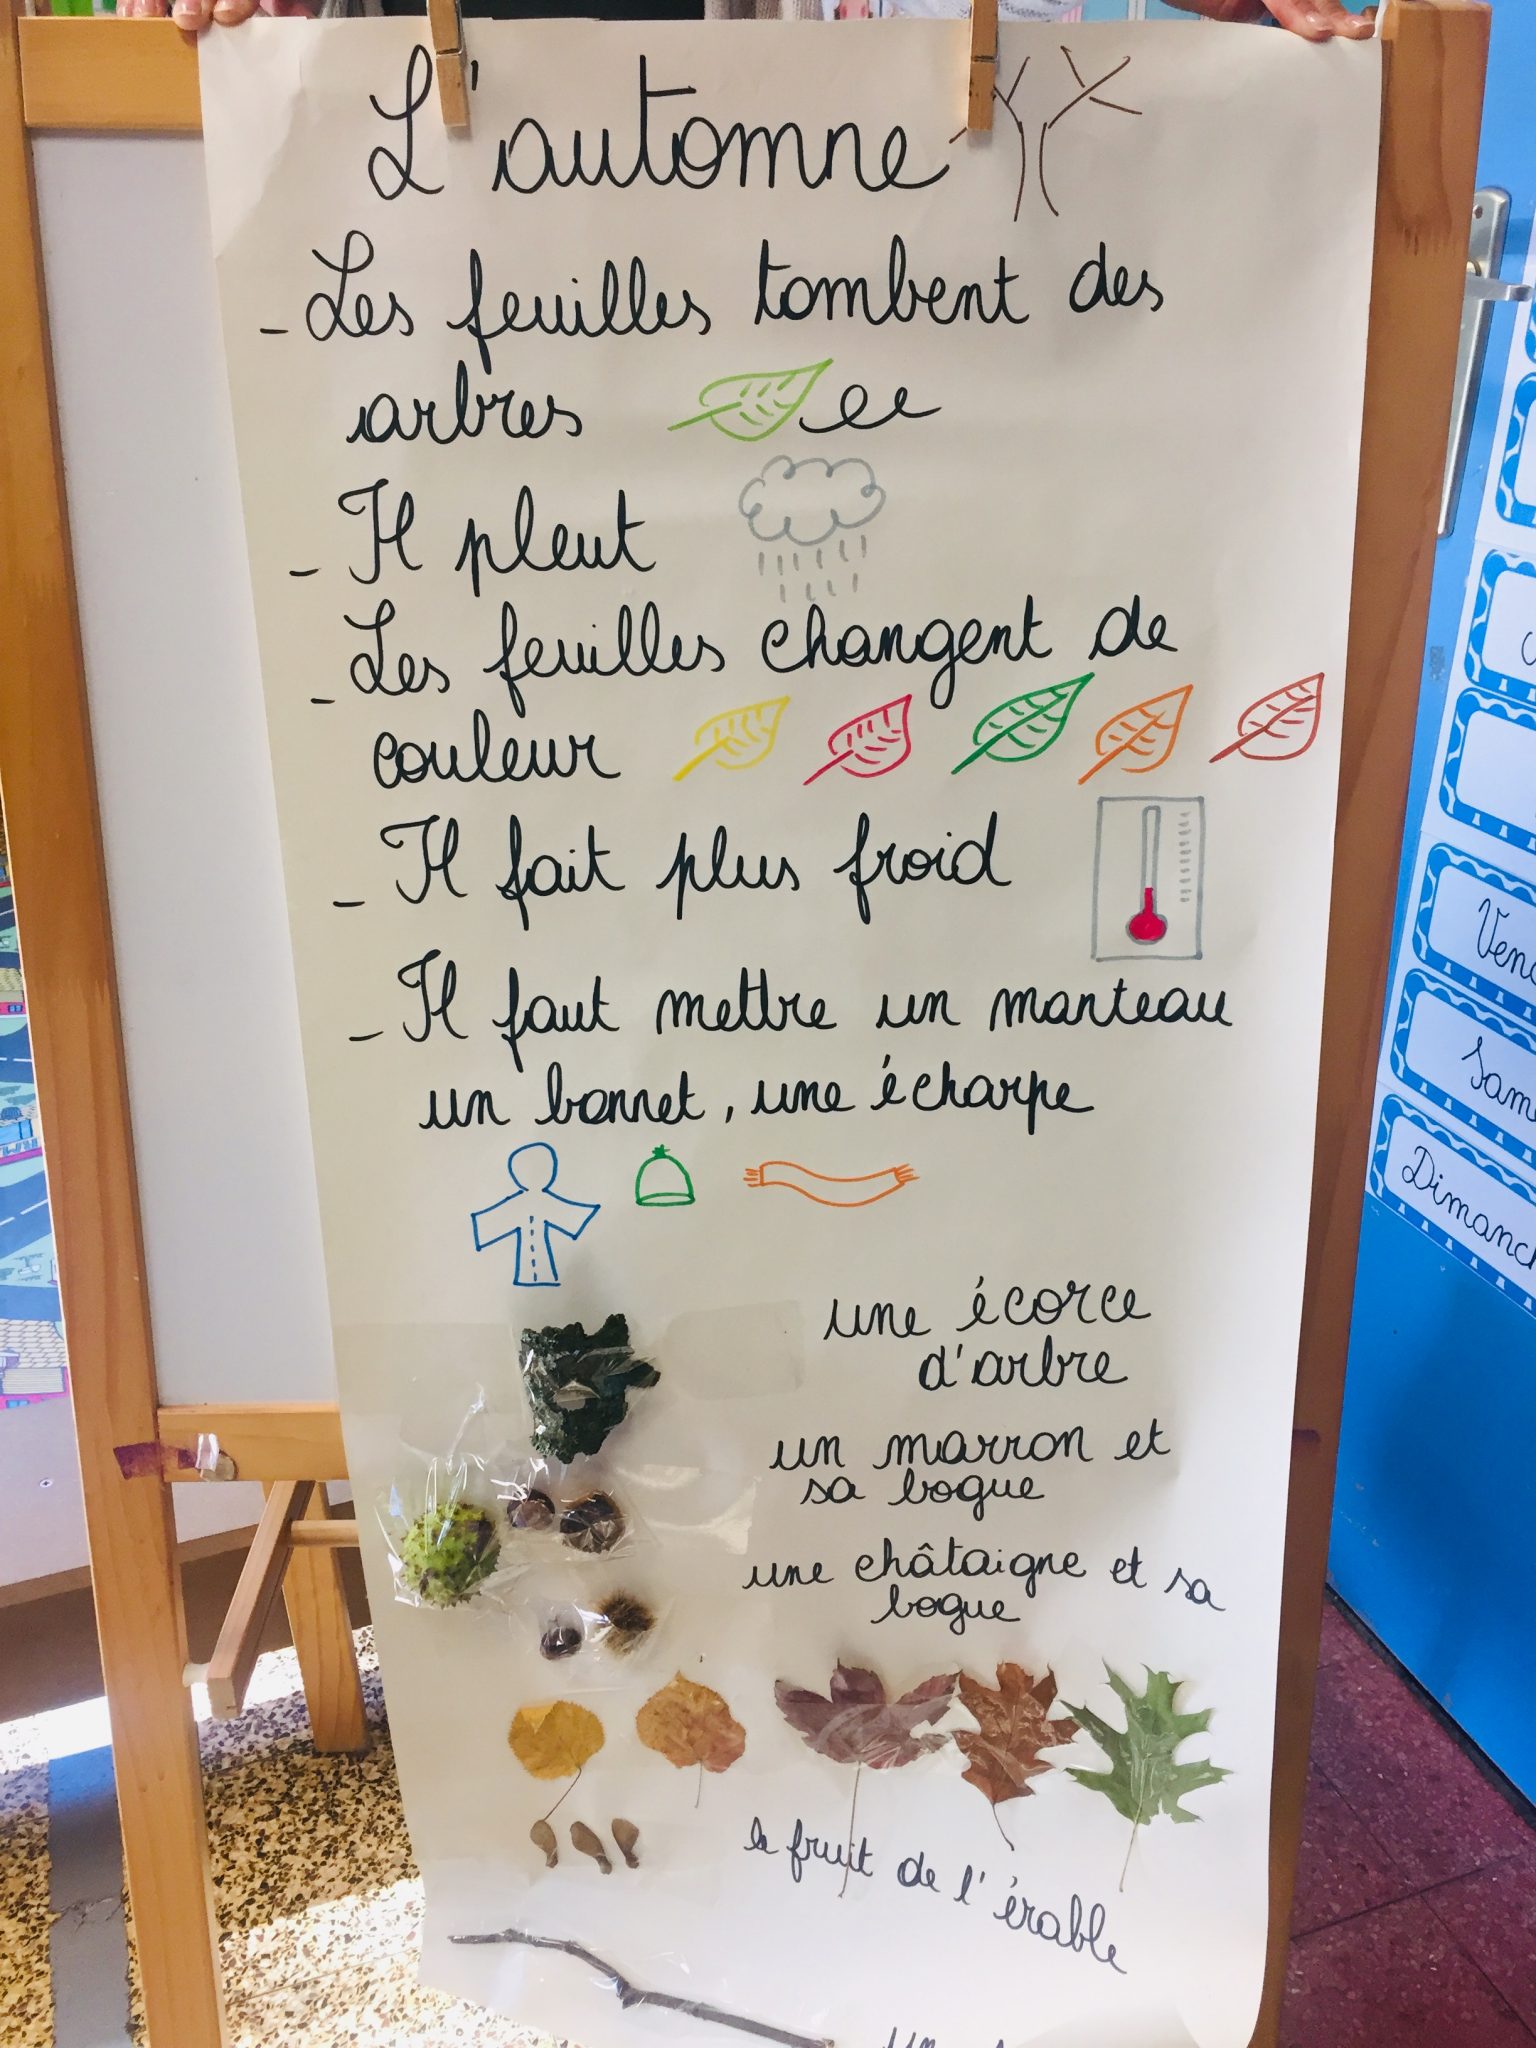 L'automne
- Les feuilles tombent des
arbres
- Il pleut
- Les feuilles changent de
couleur
- Il fait plus froid
- Il faut mettre un manteau
un bonnet, une écharpe
une écorce
d'arbre
un marron et
sa bogue
une châtaigne et sa
bogue
le fruit de l'érable
Dimanch